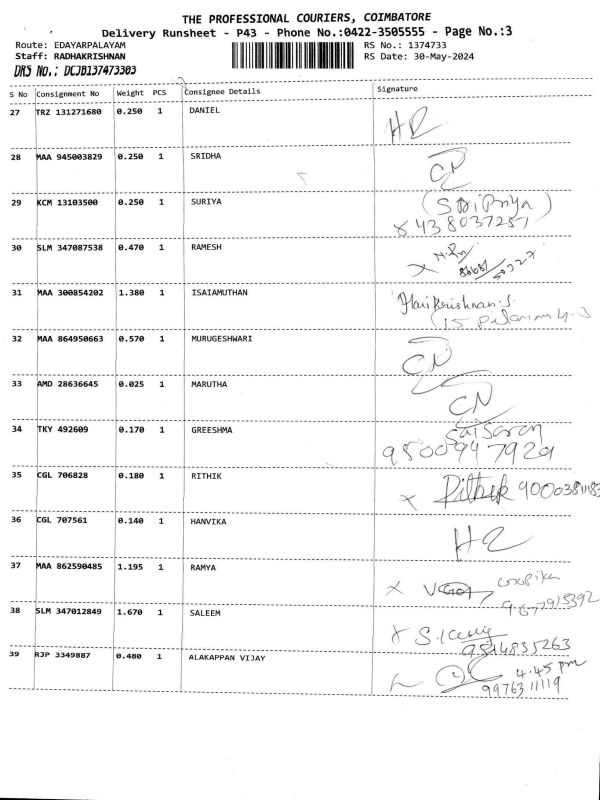 THE PROFESSIONAL COURIERS, COIMBATORE
Delivery Runsheet - P43 - Phone No.:0422-3505555 - Page No.:3
Route: EDAYARPALAYAM RS No.: 1374733
Staff: RADHAKRISHNAN RS Date: 30-May-2024
DRS No.: DCJB137473303
S No Consignment No Weight PCS Consignee Details Signature
27 TRZ 131271680 0.250 1 DANIEL
28 MAA 945003829 0.250 1 SRIDHA CN
29 KCM 13103500 0.250 1 SURIYA (SriPriya)
8438037251
30 SLM 347087538 0.470 1 RAMESH
31 MAA 300854202 1.380 1 ISAIAMUTHAN Hari Krishnan.S.
32 MAA 864950663 0.570 1 MURUGESHWARI CN
33 AMD 28636645 0.025 1 MARUTHA CN
34 TKY 492609 0.170 1 GREESHMA Saisaran
9500947929
35 CGL 706828 0.180 1 RITHIK Rithik
36 CGL 707561 0.140 1 HANVIKA
37 MAA 862590485 1.195 1 RAMYA
38 SLM 347012849 1.670 1 SALEEM
9514835263
39 RJP 3349887 0.480 1 ALAKAPPAN VIJAY 4.45 pm
9976311119